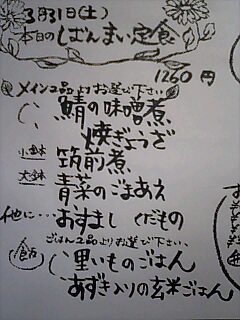 3月31日(土)
本日のしぜんまい定食
1260円
メイン2品よりお選び下さい
鯖の味噌煮
焼ぎょうざ
小鉢 筑前煮
大鉢 青菜のごまあえ
他に… おすまし くだもの
ごはん2品よりお選び下さい
里いものごはん
あずき入りの玄米ごはん